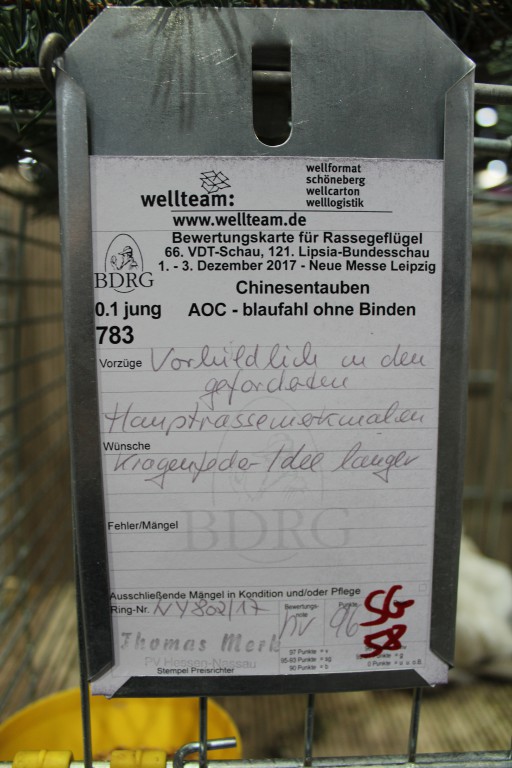 wellteam:
wellformat
schöneberg
wellcarton
welllogistik
www.wellteam.de
Bewertungskarte für Rassegeflügel
66. VDT-Schau, 121. Lipsia-Bundesschau
1. - 3. Dezember 2017 - Neue Messe Leipzig
BDRG
Chinesentauben
0.1 jung AOC - blaufahl ohne Binden
783
Vorzüge Vorbildlich in den
geforderten
Hauptrassemerkmalen
Wünsche
Kragenfeder Idee länger
BDRG
Fehler/Mängel
Ausschließende Mängel in Kondition und/oder Pflege
Ring-Nr. NY802/17
Bewertungs-
note
hv
Punkte
96
SG
58
Thomas Merk
PV Hessen-Nassau
Stempel Preisrichter
97 Punkte = v
95-93 Punkte = sg
90 Punkte = b
0 Punkte = o u. u.B.